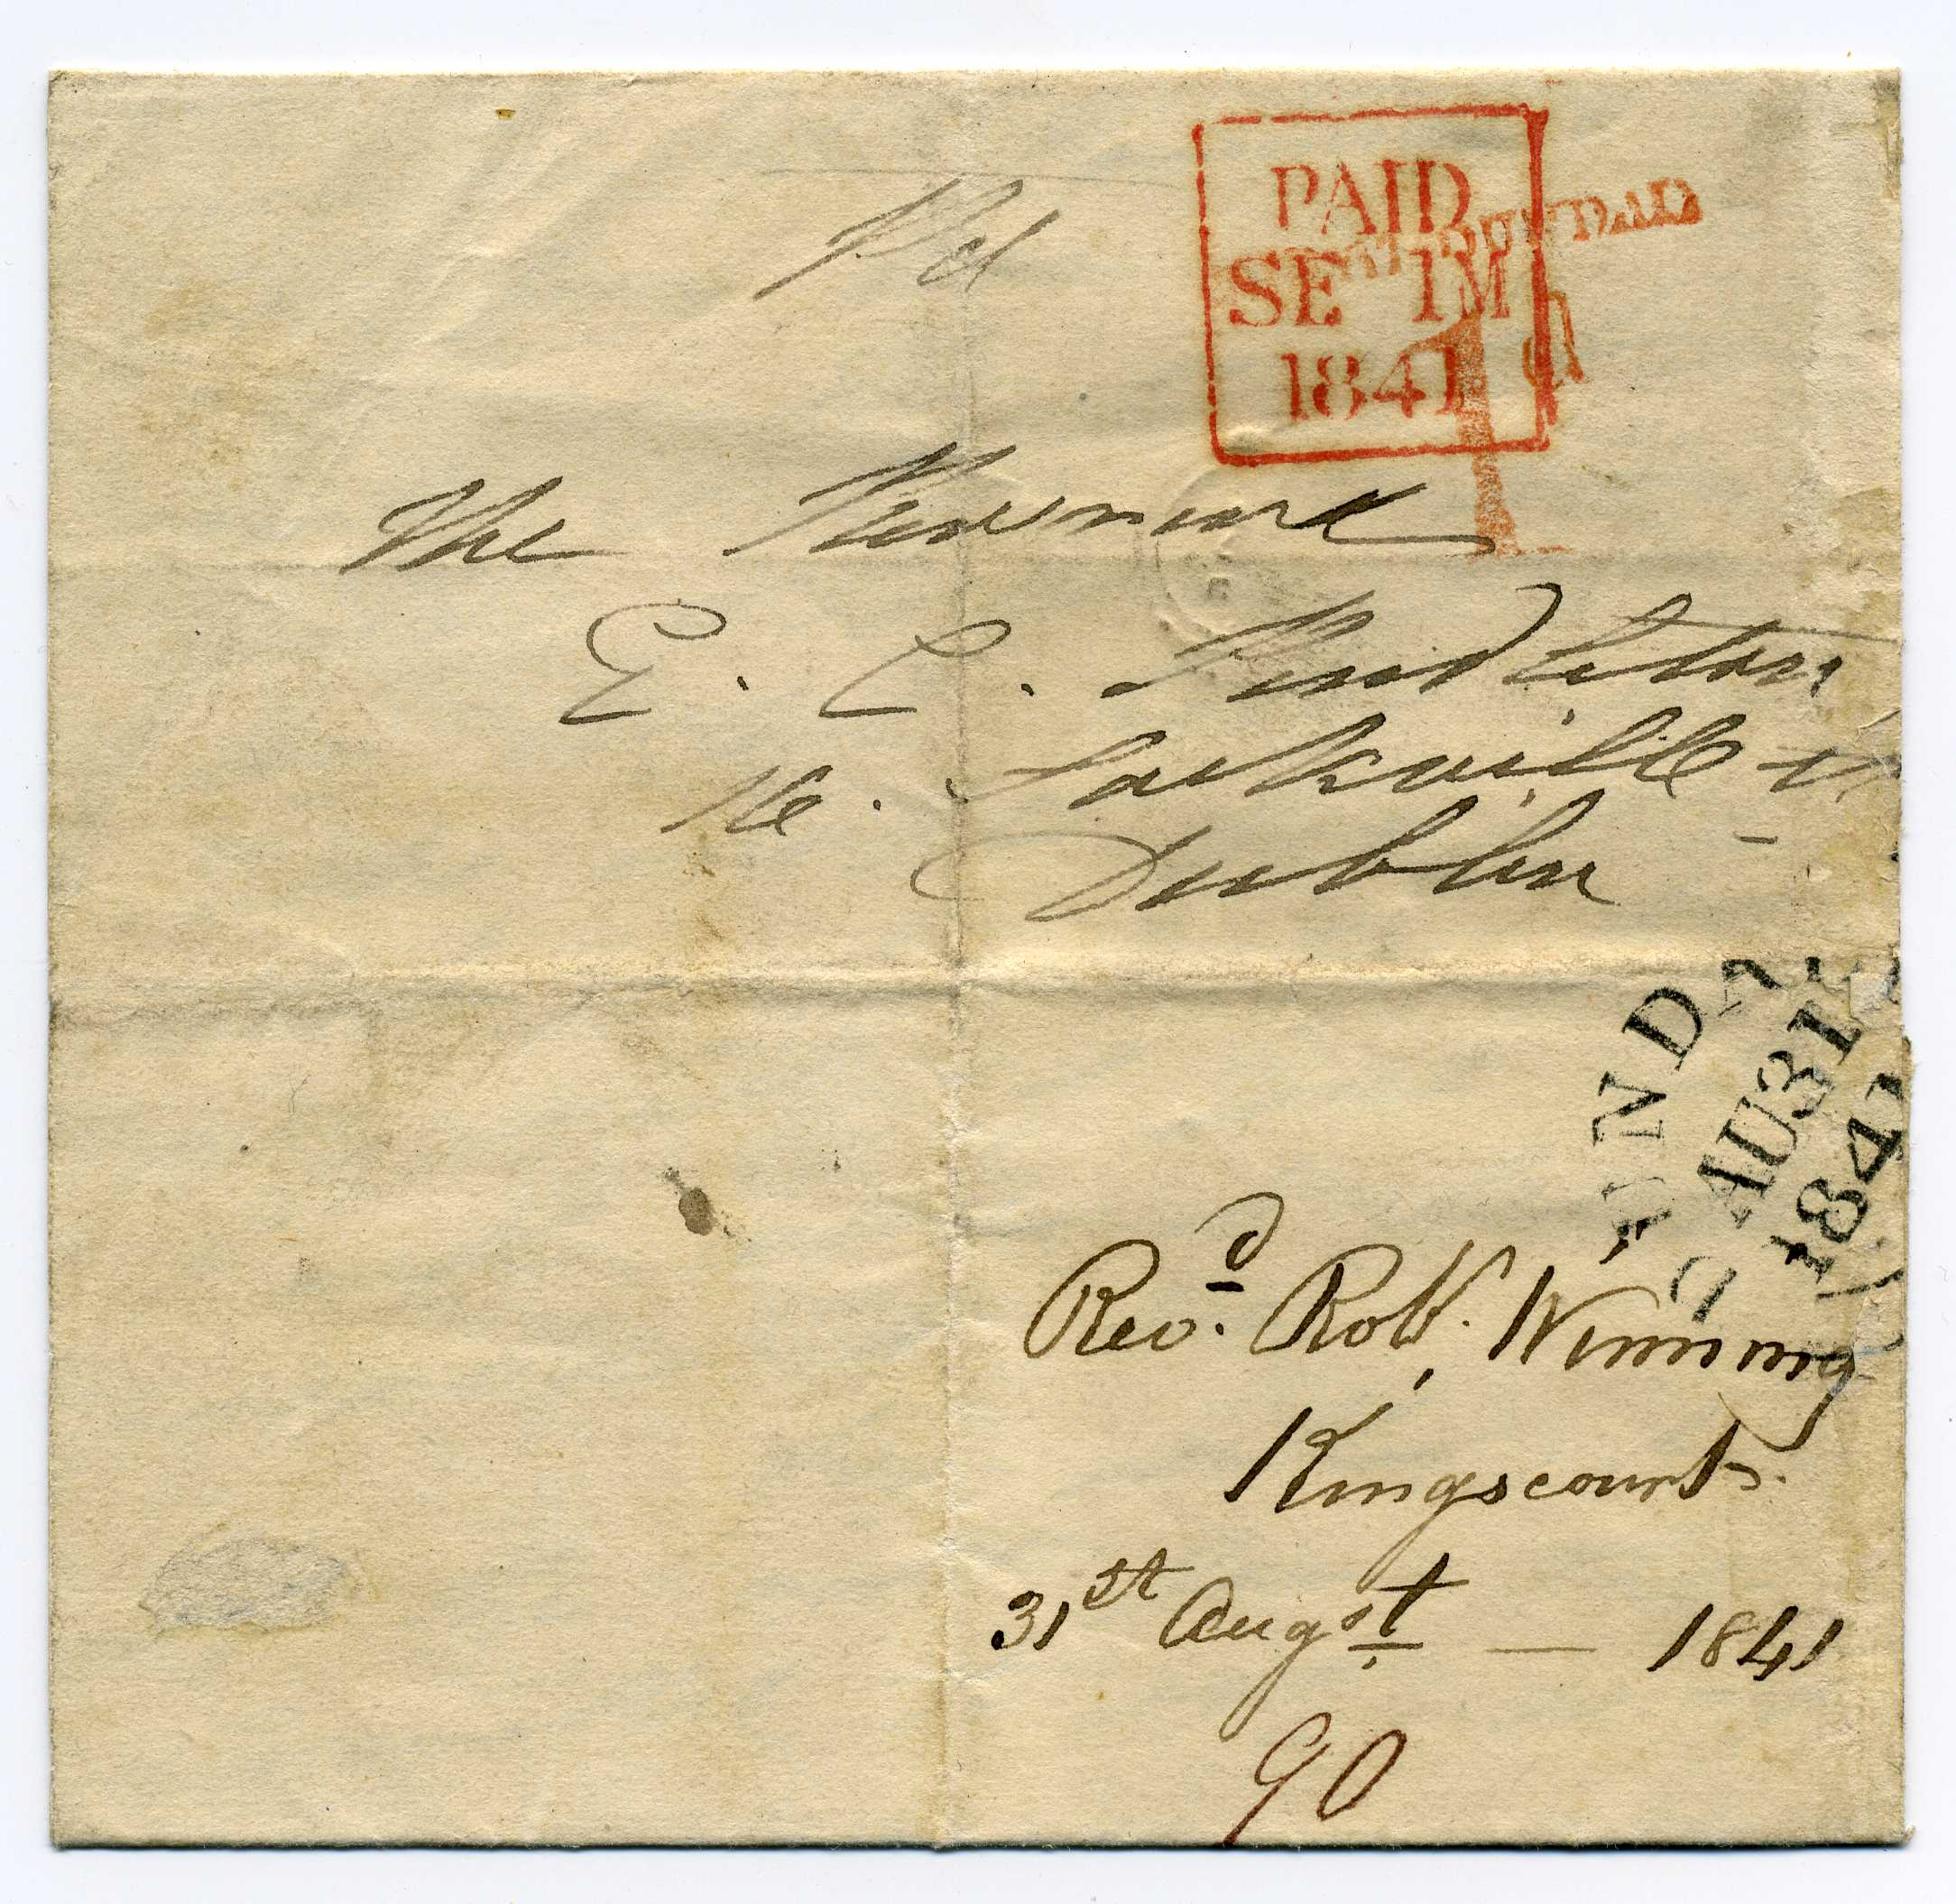 Pd
PAID
SE 1M
1841
DUNDALK
1d
The
E. C. Pendleton
16. Sackville st
Dublin
UNDA
AU 31
1841
Revd. Robt. Winning
Kingscourt
31st Augst — 1841
90